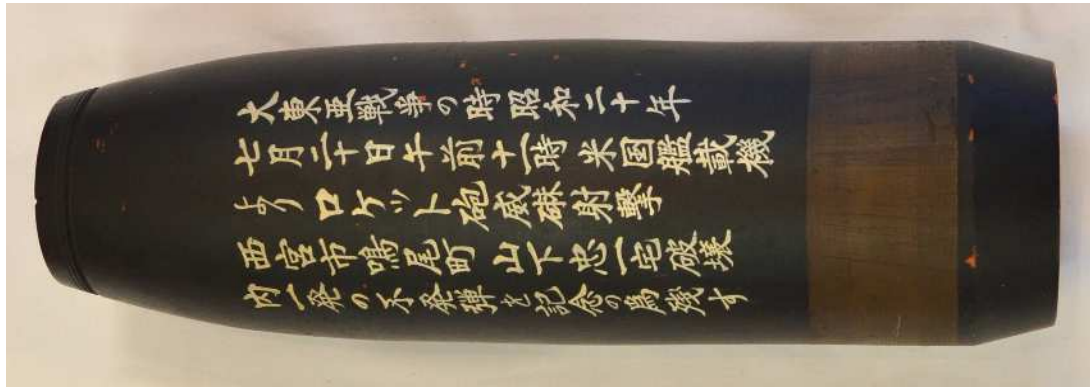 大東亜戦争の時昭和二十年
七月二十日午前十一時米国艦載機
より ロケット砲威射撃
西宮市鳴尾町 山下忠一宅破壊
内一発の不発弾を記念の為残す